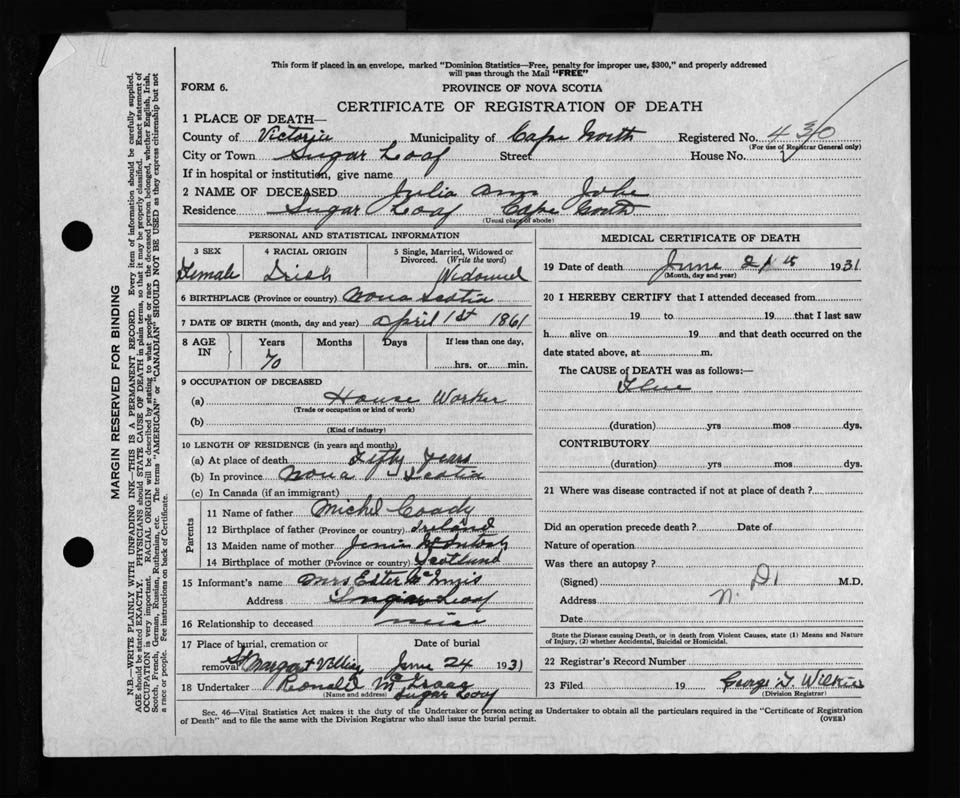 This form if placed in an envelope, marked "Dominion Statistics—Free, penalty for improper use, $300," and properly addressed
will pass through the Mail "FREE"
FORM 6.
PROVINCE OF NOVA SCOTIA
CERTIFICATE OF REGISTRATION OF DEATH
1 PLACE OF DEATH—
County of Victoria Municipality of Cape North Registered No. 430
(For use of Registrar General only)
City or Town Sugar Loaf Street House No.
If in hospital or institution, give name
2 NAME OF DECEASED Julia Ann
Residence Sugar Loaf Cape North
(Usual place of abode)
PERSONAL AND STATISTICAL INFORMATION
3 SEX 4 RACIAL ORIGIN 5 Single, Married, Widowed or
Divorced. (Write the word)
Female Irish Widowed
6 BIRTHPLACE (Province or country) Nova Scotia
7 DATE OF BIRTH (month, day and year) April 1st 1861
8 AGE IN Years Months Days If less than one day,
70 hrs. or min.
9 OCCUPATION OF DECEASED
(a) House Worker
(Trade or occupation or kind of work)
(b)
(Kind of industry)
10 LENGTH OF RESIDENCE (in years and months)
(a) At place of death Fifty Years
(b) In province Nova Scotia
(c) In Canada (if an immigrant)
Parents
11 Name of father Michel Coady
12 Birthplace of father (Province or country) Ireland
13 Maiden name of mother
14 Birthplace of mother (Province or country) Scotland
15 Informant's name Mrs Ester
Address Loaf
16 Relationship to deceased
17 Place of burial, cremation or Date of burial
removal St Margaret Village June 24 1931
18 Undertaker Ronald
(Name and address) Sugar Loaf
MEDICAL CERTIFICATE OF DEATH
19 Date of death June 1931
(Month, day and year)
20 I HEREBY CERTIFY that I attended deceased from
19 to 19 that I last saw
h alive on 19 and that death occurred on the
date stated above, at m.
The CAUSE of DEATH was as follows:—
Flue
(duration) yrs mos dys.
CONTRIBUTORY
(duration) yrs mos dys.
21 Where was disease contracted if not at place of death?
Did an operation precede death? Date of
Nature of operation
Was there an autopsy?
(Signed) M.D.
Address
Date
State the Disease causing Death, or in death from Violent Causes, state (1) Means and Nature
of Injury, (2) whether Accidental, Suicidal or Homicidal.
22 Registrar's Record Number
23 Filed 19 George
(Division Registrar)
Sec. 46—Vital Statistics Act makes it the duty of the Undertaker or person acting as Undertaker to obtain all the particulars required in the "Certificate of Registration
of Death" and to file the same with the Division Registrar who shall issue the burial permit.
(OVER)
MARGIN RESERVED FOR BINDING
N.B.—WRITE PLAINLY WITH UNFADING INK—THIS IS A PERMANENT RECORD. Every item of information should be carefully supplied.
AGE should be stated EXACTLY. PHYSICIANS should STATE CAUSE OF DEATH in plain terms, so that it may be properly classified. Exact statement of
OCCUPATION is very important. RACIAL ORIGIN will be described by stating to what people or race the deceased person belonged, whether English, Irish,
Scotch, French, German, Russian, Ruthenian, etc. The terms "AMERICAN" or "CANADIAN" SHOULD NOT BE USED as they express citizenship but not
a race or people. See instructions on back of Certificate.